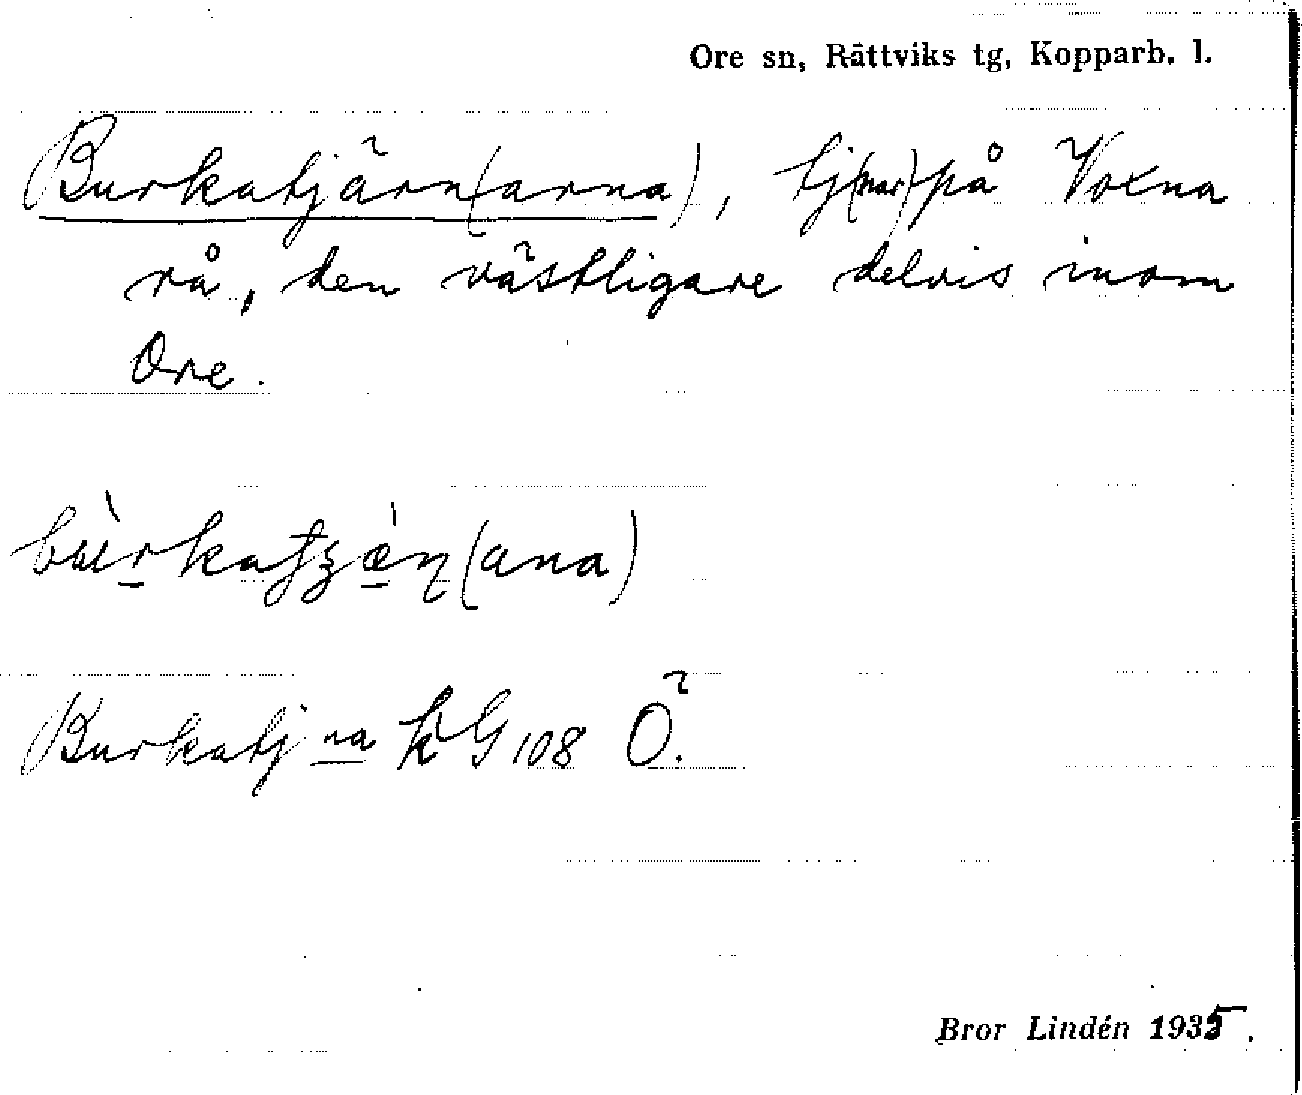 Ore sn, Rättviks tg, Kopparb. l.
Burkatjärn(arna), tj(nar) på Voxna
rå, den västligare delvis inom
Ore.
bùrkatʒæ̀ɳ(ana)
Burkatj-na k G 108 Ö.
Bror Lindén 1935.